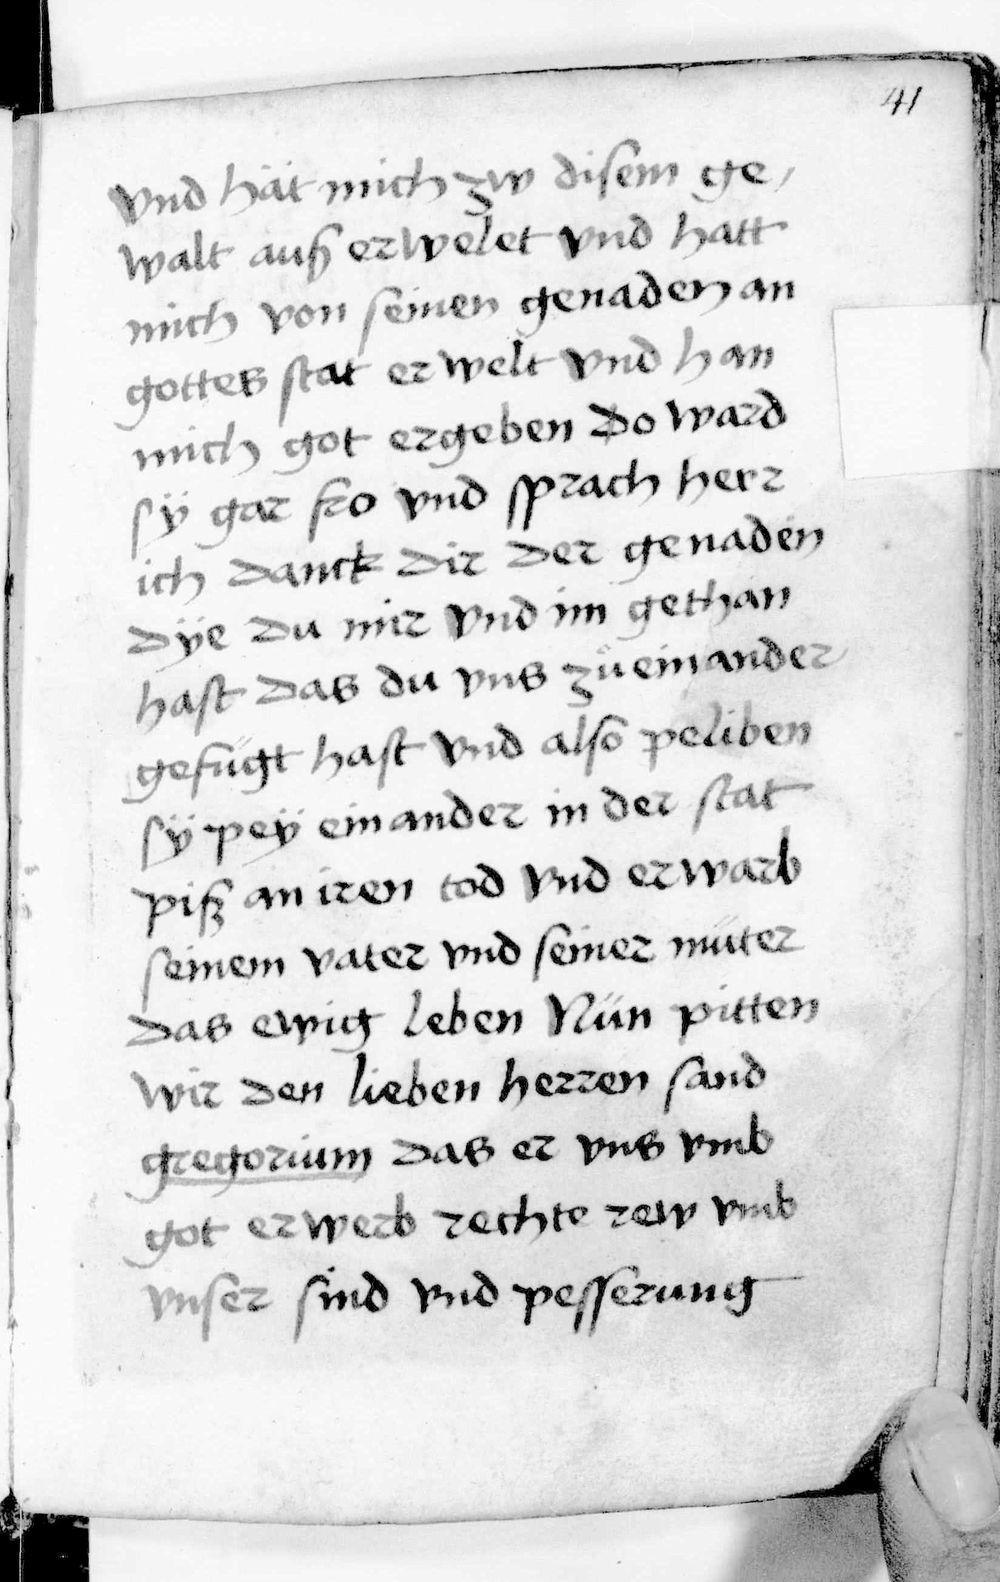 41
vnd hät mich zw disem ge,
walt auß erwelet vnd hatt
mich von seinen genaden an
gottes stat erwelt vnd han
mich got ergeben Do ward
sÿ gar fro vnd sprach herr
ich danck dir der genaden
dÿe du mir vnd im gethan
hast das du vns zü einander
gefügt hast vnd also peliben
sÿ peÿ einander in der stat
piß an iren tod vnd erwarb
seinem vater vnd seiner müter
das ewig leben Nün pitten
wir den lieben herren sand
gregorium das er vns vmb
got erwerb rechte rew vmb
vnser sind vnd pesserung